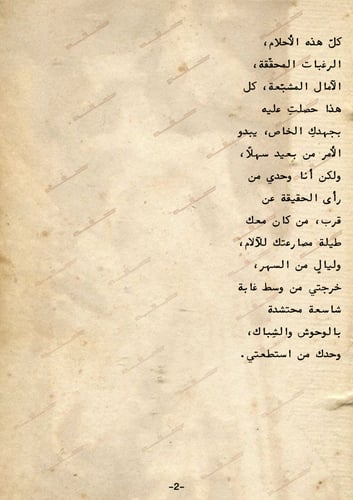 كلّ هذه الأحلام،
الرغبات المحقّقة،
الآمال المشبّعة، كل
هذا حصلتِ عليه
بجهدكِ الخاص، يبدو
الأمر من بعيد سهلًا،
ولكن أنا وحدي من
رأى الحقيقة عن
قرب، من كان معك
طيلة مصارعتك للآلام،
وليالٍ من السهر،
خرجتي من وسط غابة
شاسعة محتشدة
بالوحوش والشِباك،
وحدك من استطعتي.
-2-